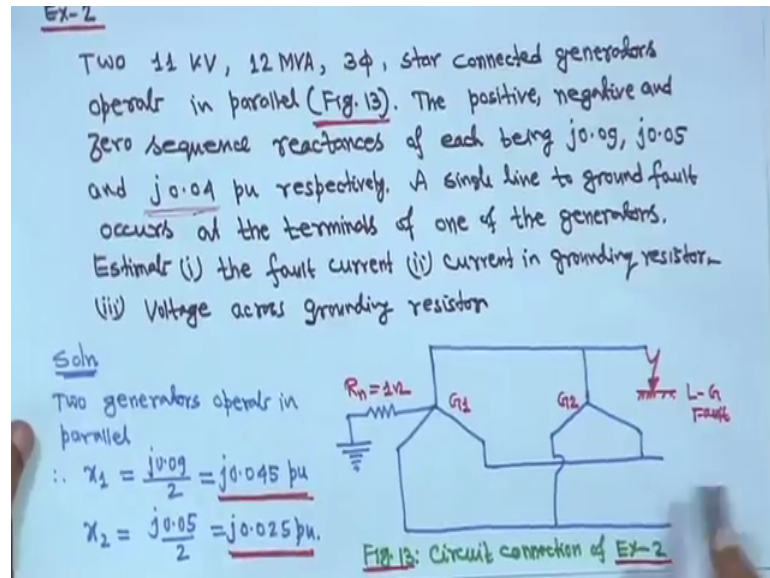 EX-2
Two 11 KV, 12 MVA, 3ϕ, star connected generators
operate in parallel (Fig. 13). The positive, negative and
zero sequence reactances of each being j0.09, j0.05
and j0.04 pu respectively. A single line to ground fault
occurs at the terminals of one of the generators.
Estimate (i) the fault current (ii) current in grounding resistor
(iii) Voltage across grounding resistor
Soln
Two generators operate in
parallel
∴ x1 = j0.09/2 = j0.045 pu
x2 = j0.05/2 = j0.025 pu.
Rn = 1Ω
G1
G2
L-G
Fault
Fig. 13: Circuit connection of EX-2